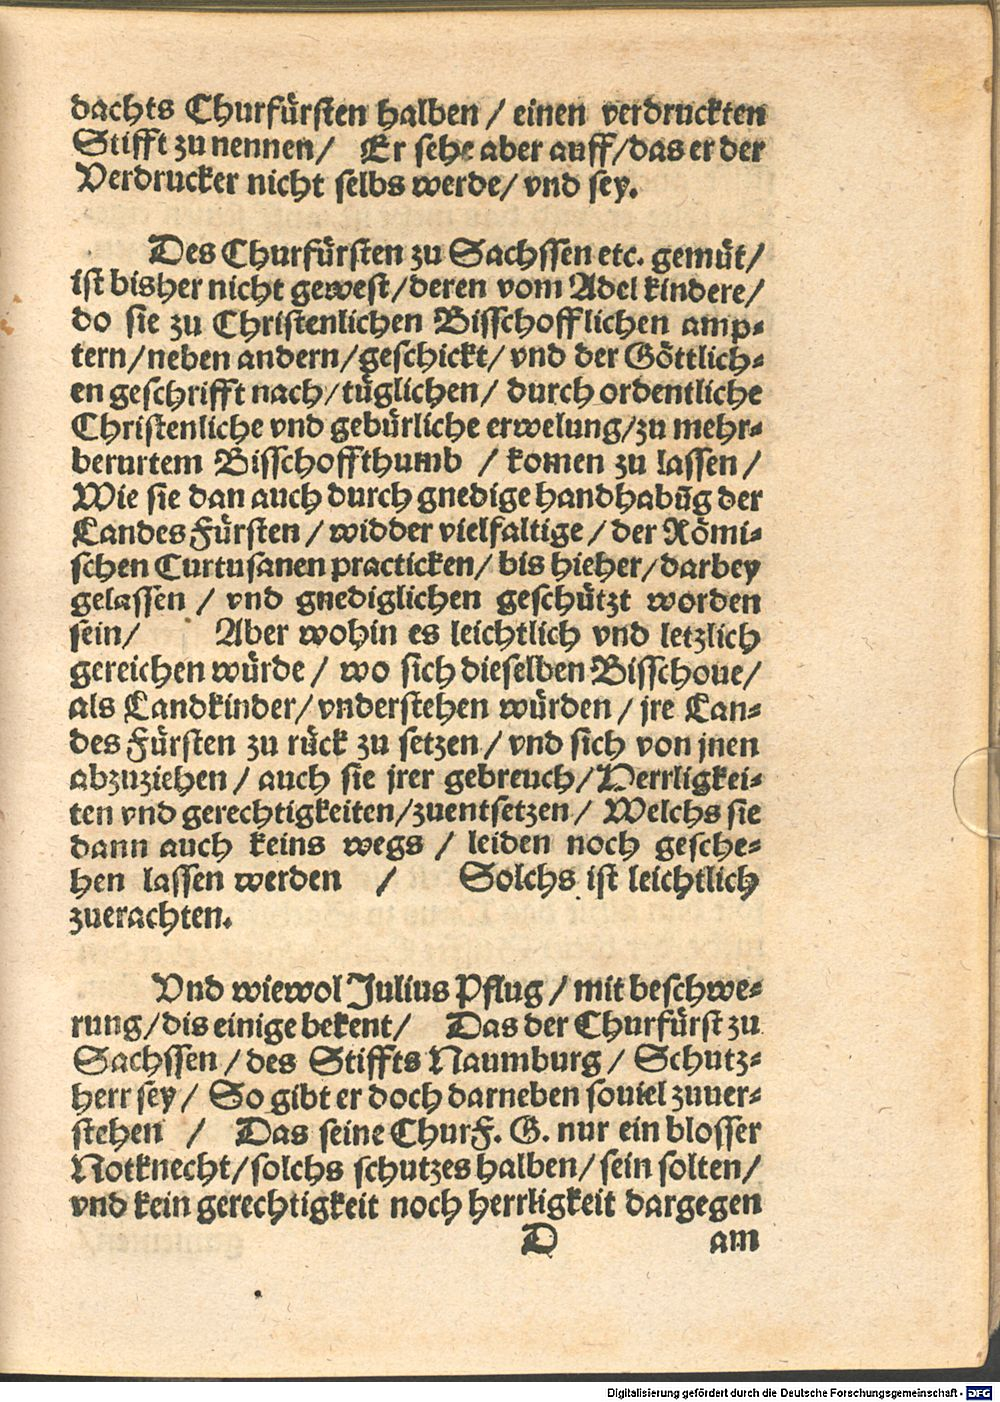 dachts Churfürsten halben / einen verdruckten
Stifft zu nennen / Er sehe aber auff / das er der
Verdrucker nicht selbs werde / vnd sey.
Des Churfürsten zu Sachssen etc. gemüt /
ist bisher nicht gewest / deren vom Adel kindere /
do sie zu Christenlichen Bisschofflichen amp⸗
tern / neben andern / geschickt / vnd der Göttlich⸗
en geschrifft nach / tüglichen / durch ordentliche
Christenliche vnd gebürliche erwelung / zu mehr⸗
berurtem Bisschoffthumb / komen zu lassen /
Wie sie dan auch durch gnedige handhabũg der
Landes Fürsten / widder vielfaltige / der Römi⸗
schen Curtusanen practicken / bis hieher / darbey
gelassen / vnd gnediglichen geschützt worden
sein / Aber wohin es leichtlich vnd letzlich
gereichen würde / wo sich dieselben Bisschoue /
als Landkinder / vnderstehen würden / jre Lan⸗
des Fürsten zu rück zu setzen / vnd sich von jnen
abzuziehen / auch sie jrer gebreuch / Herrligkei⸗
ten vnd gerechtigkeiten / zuentsetzen / Welchs sie
dann auch keins wegs / leiden noch gesche⸗
hen lassen werden / Solchs ist leichtlich
zuerachten.
Vnd wiewol Julius Pflug / mit beschwe⸗
rung / dis einige bekent / Das der Churfürst zu
Sachssen / des Stiffts Naumburg / Schutz⸗
herr sey / So gibt er doch darneben souiel zuuer⸗
stehen / Das seine Churf. G. nur ein blosser
Notknecht / solchs schutzes halben / sein solten /
vnd kein gerechtigkeit noch herrligkeit dargegen
D am
Digitalisierung gefördert durch die Deutsche Forschungsgemeinschaft - DFG